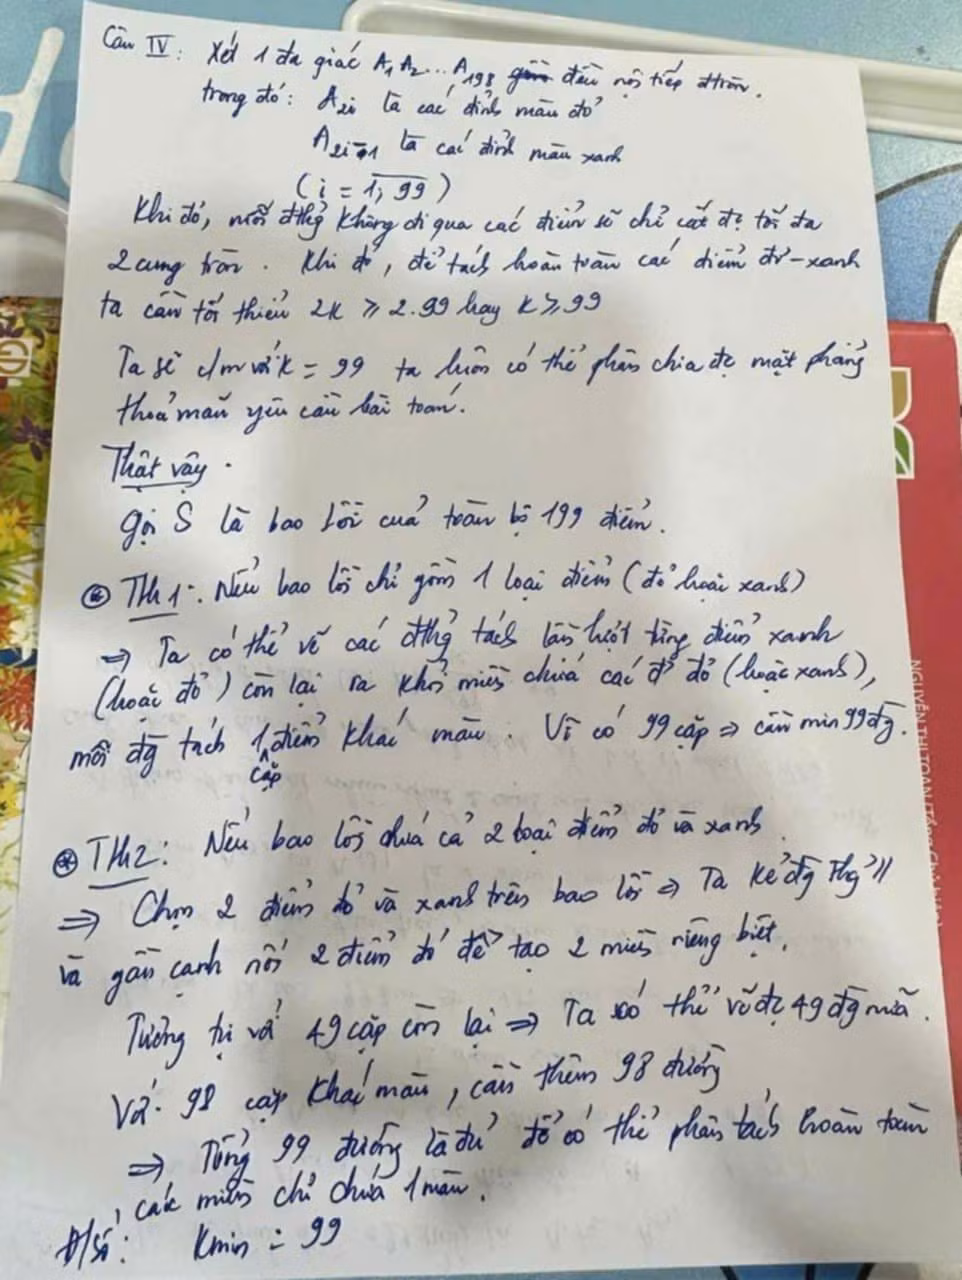 Câu IV: Xét 1 đa giác A₁A₂...A₁₉₈ đều nội tiếp đtròn.
trong đó: A₂ᵢ là các đỉnh màu đỏ
A₂ᵢ₋₁ là các đỉnh màu xanh
(i = 1,99)
Khi đó, mỗi đthg không đi qua các điểm sẽ chỉ cắt đc tối đa
2 cung tròn. Khi đó, để tách hoàn toàn các điểm đỏ-xanh
ta cần tối thiểu 2k ≥ 2.99 hay k ≥ 99
Ta sẽ c/m với k = 99 ta luôn có thể phân chia đc mặt phẳng
thoả mãn yêu cầu bài toán.
Thật vậy.
Gọi S là bao lồi của toàn bộ 199 điểm.
TH1: Nếu bao lồi chỉ gồm 1 loại điểm (đỏ hoặc xanh)
⇒ Ta có thể vẽ các đthg tách lần lượt từng điểm xanh
(hoặc đỏ) còn lại ra khỏi miền chứa các đ' đỏ (hoặc xanh),
mỗi đg tách 1 cặp điểm khác màu. Vì có 99 cặp ⇒ cần min 99 đg.
TH2: Nếu bao lồi chứa cả 2 loại điểm đỏ và xanh.
⇒ Chọn 2 điểm đỏ và xanh trên bao lồi ⇒ Ta kẻ đg thg //
và gần cạnh nối 2 điểm đó để tạo 2 miền riêng biệt.
Tương tự với 49 cặp còn lại ⇒ Ta có thể vẽ đc 49 đg nữa.
Với 98 cặp khác màu, cần thêm 98 đường
⇒ Tổng 99 đường là đủ để có thể phân tách hoàn toàn
các miền chỉ chứa 1 màu.
Đ/số: Kmin = 99
NGUYỄN THỊ TOAN